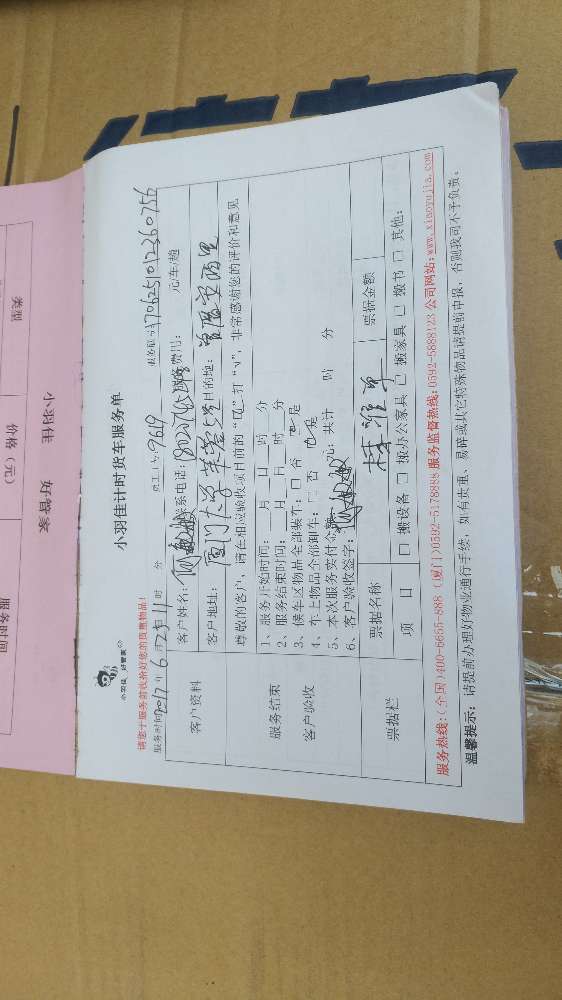 小羽佳 好管家
类型
价格（元）
服务时间
小羽佳 好管家
小羽佳计时货车服务单
请您于服务前收拾好您的贵重物品!
服务时间 2017年6月25日11时 分 员工工号:9619 服务编号:1706251012360756
客户资料
客户姓名: 联系电话: 服务费用: 元/车/趟
客户地址:厦门大学 目的地:
尊敬的客户，请在相应验收项目前的“口”打“√”，非常感谢您的评价和意见
服务结束
客户验收
1、服务开始时间: 月 日 时 分
2、服务结束时间: 月 日 时 分
3、候车区物品全部装车: □ 否 是
4、车上物品全部卸车: □ 否 是
5、本次服务实付金额 元; 共计 时 分
6、客户验收签字:
票据栏
票据名称 票据金额
项 目 □ 搬设备 □ 搬办公家具 □ 搬家具 □ 搬书 □ 其他:
服务热线:(全国)400-6655-888 (厦门)0592-5178888 服务监督热线:0592-5888123 公司网站:www.xiaoyujia.com
温馨提示: 请提前办理好物业通行手续，如有贵重、易碎或其它特殊物品请提前申报，否则我司不予负责。